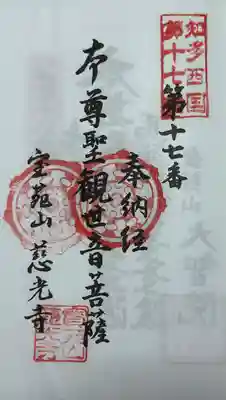 知多西国
第十七
第十七番
奉納経
本尊聖観世音菩薩
宝苑山慈光寺